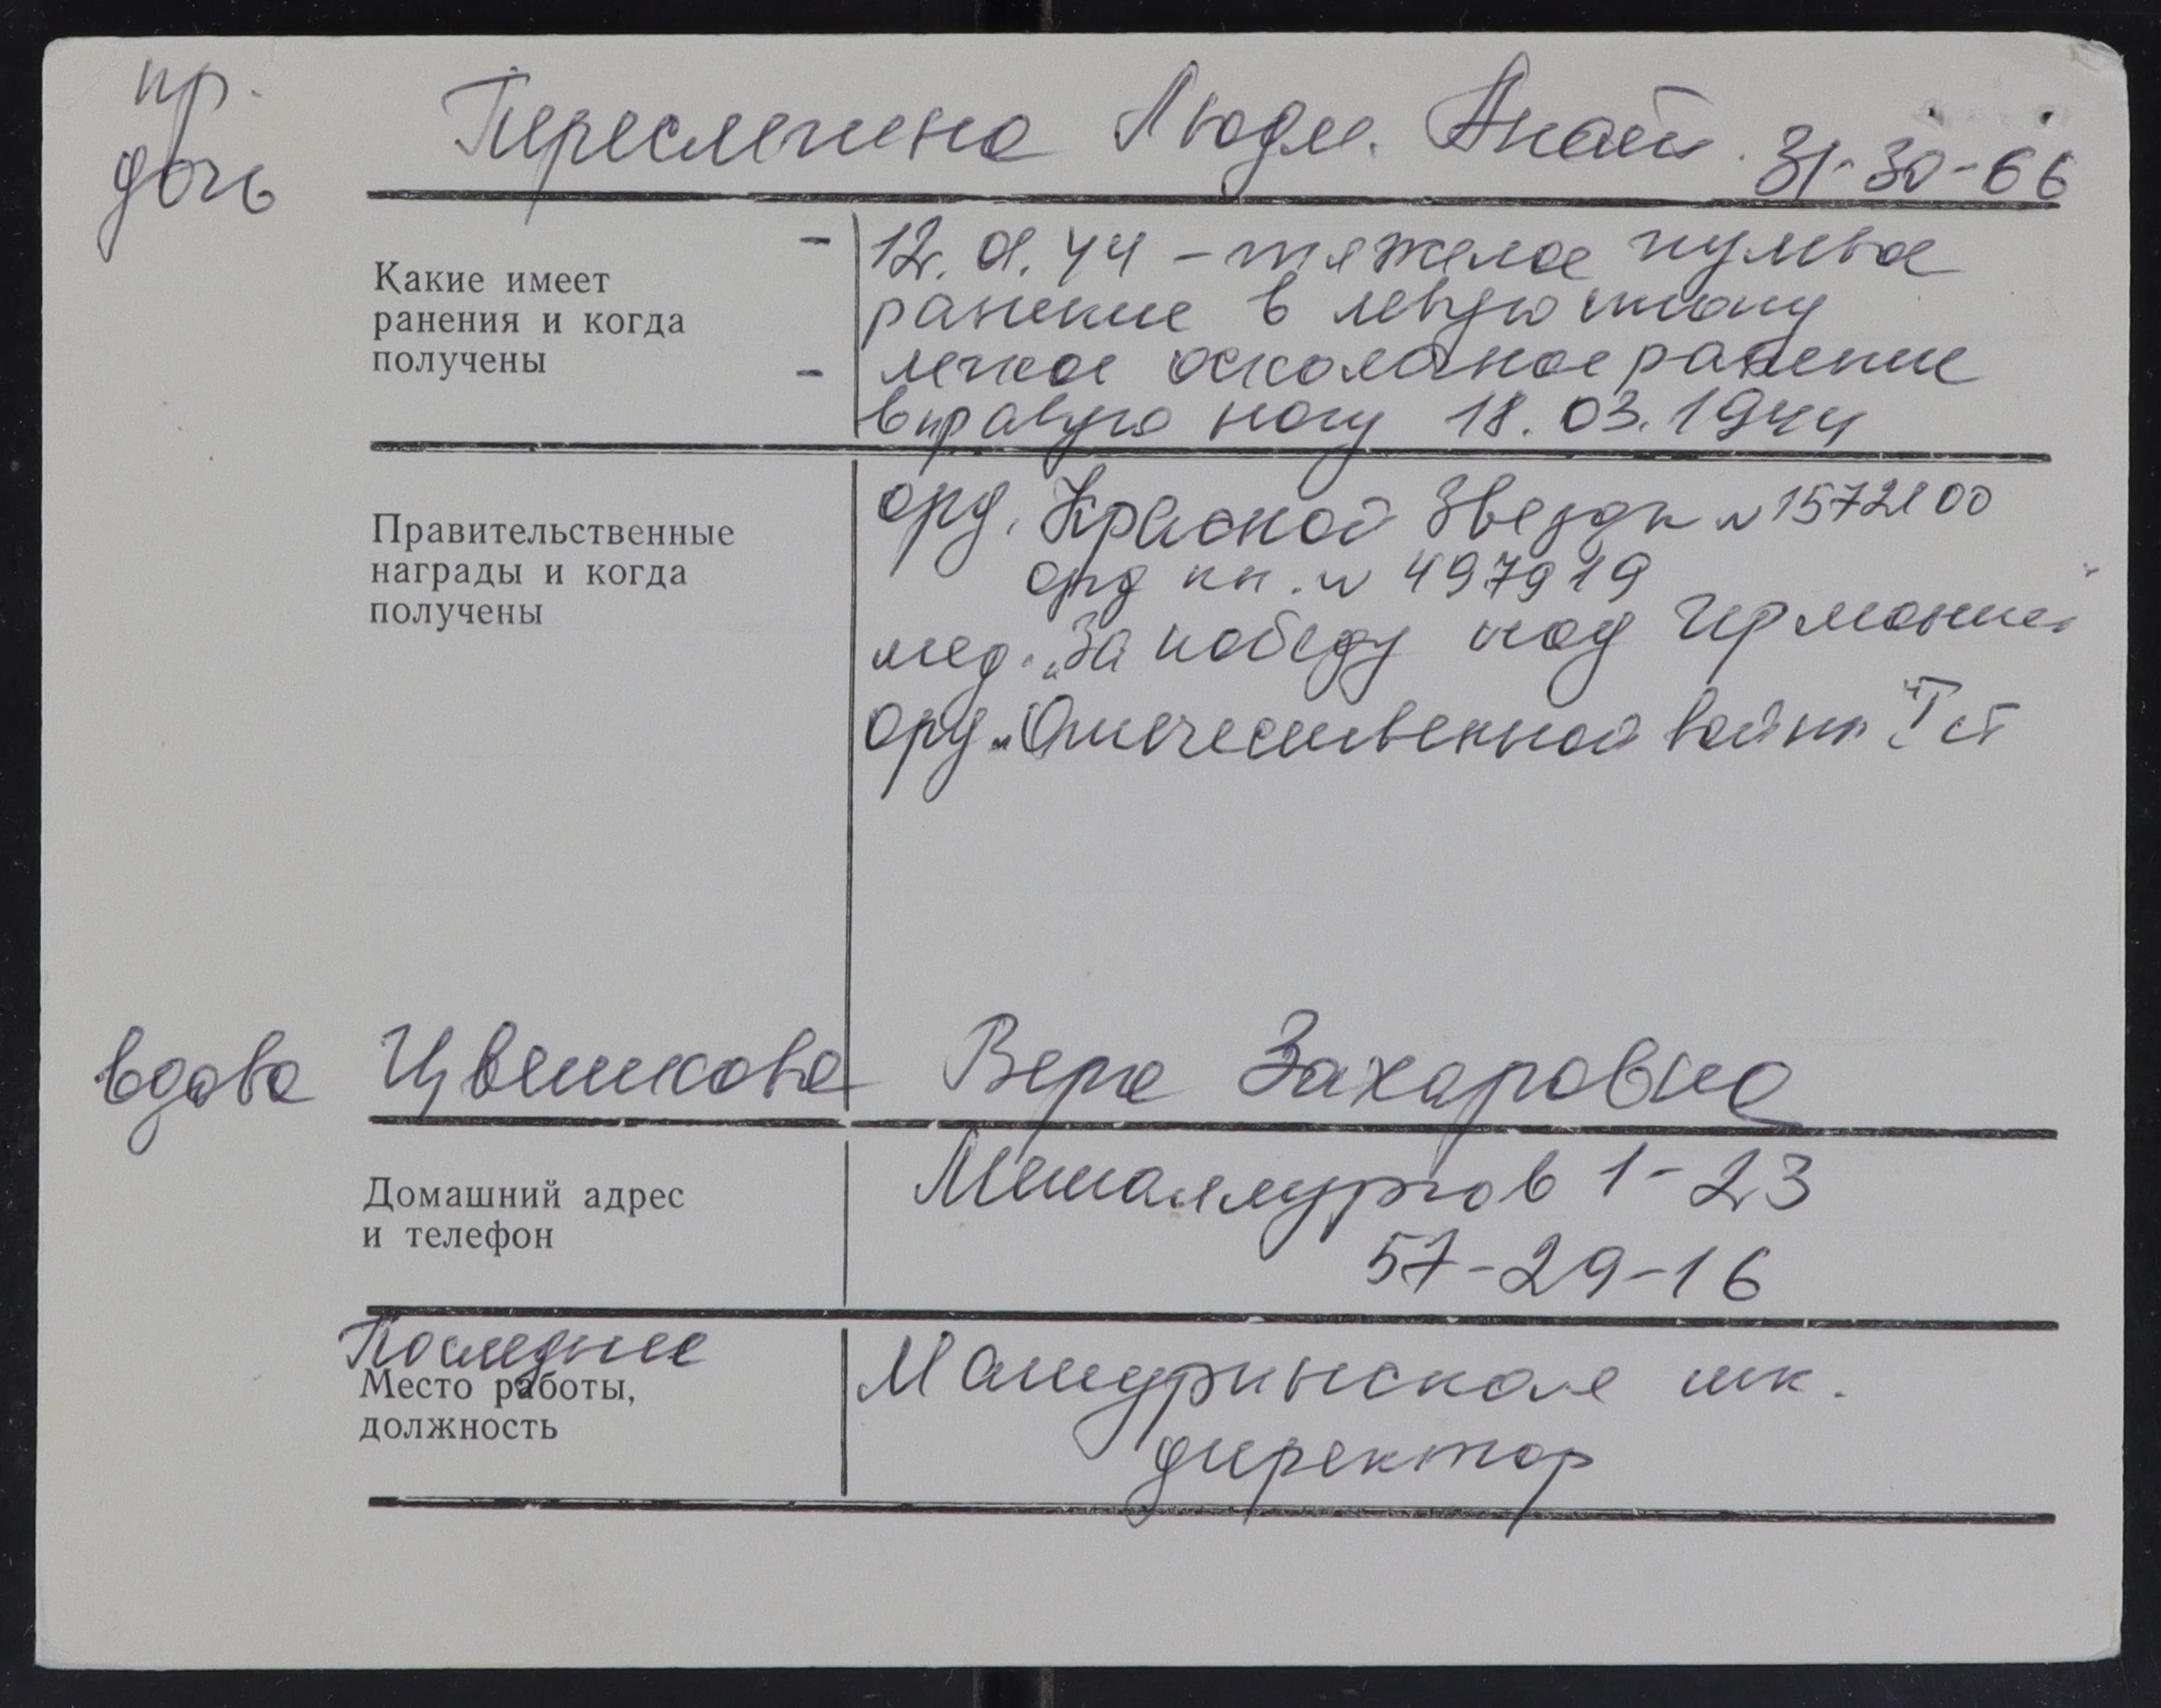 пр.
дочь
Переслегина Людм. Анат. 31-30-66
Какие имеет
ранения и когда
получены
- 12.01.44 - тяжелое пулевое
ранение в левую стопу
- легкое осколочное ранение
в правую ногу 18.03.1944
Правительственные
награды и когда
получены
орд. Красной Звезды №
орд кн. № 497919
мед. „За победу над Германией"
орд „Отечественной войны" I ст
вдова Цветкова Вера Захаровна
Домашний адрес
и телефон
Металлургов 1-23
57-29-16
Последнее
Место работы,
должность
шк.
директор